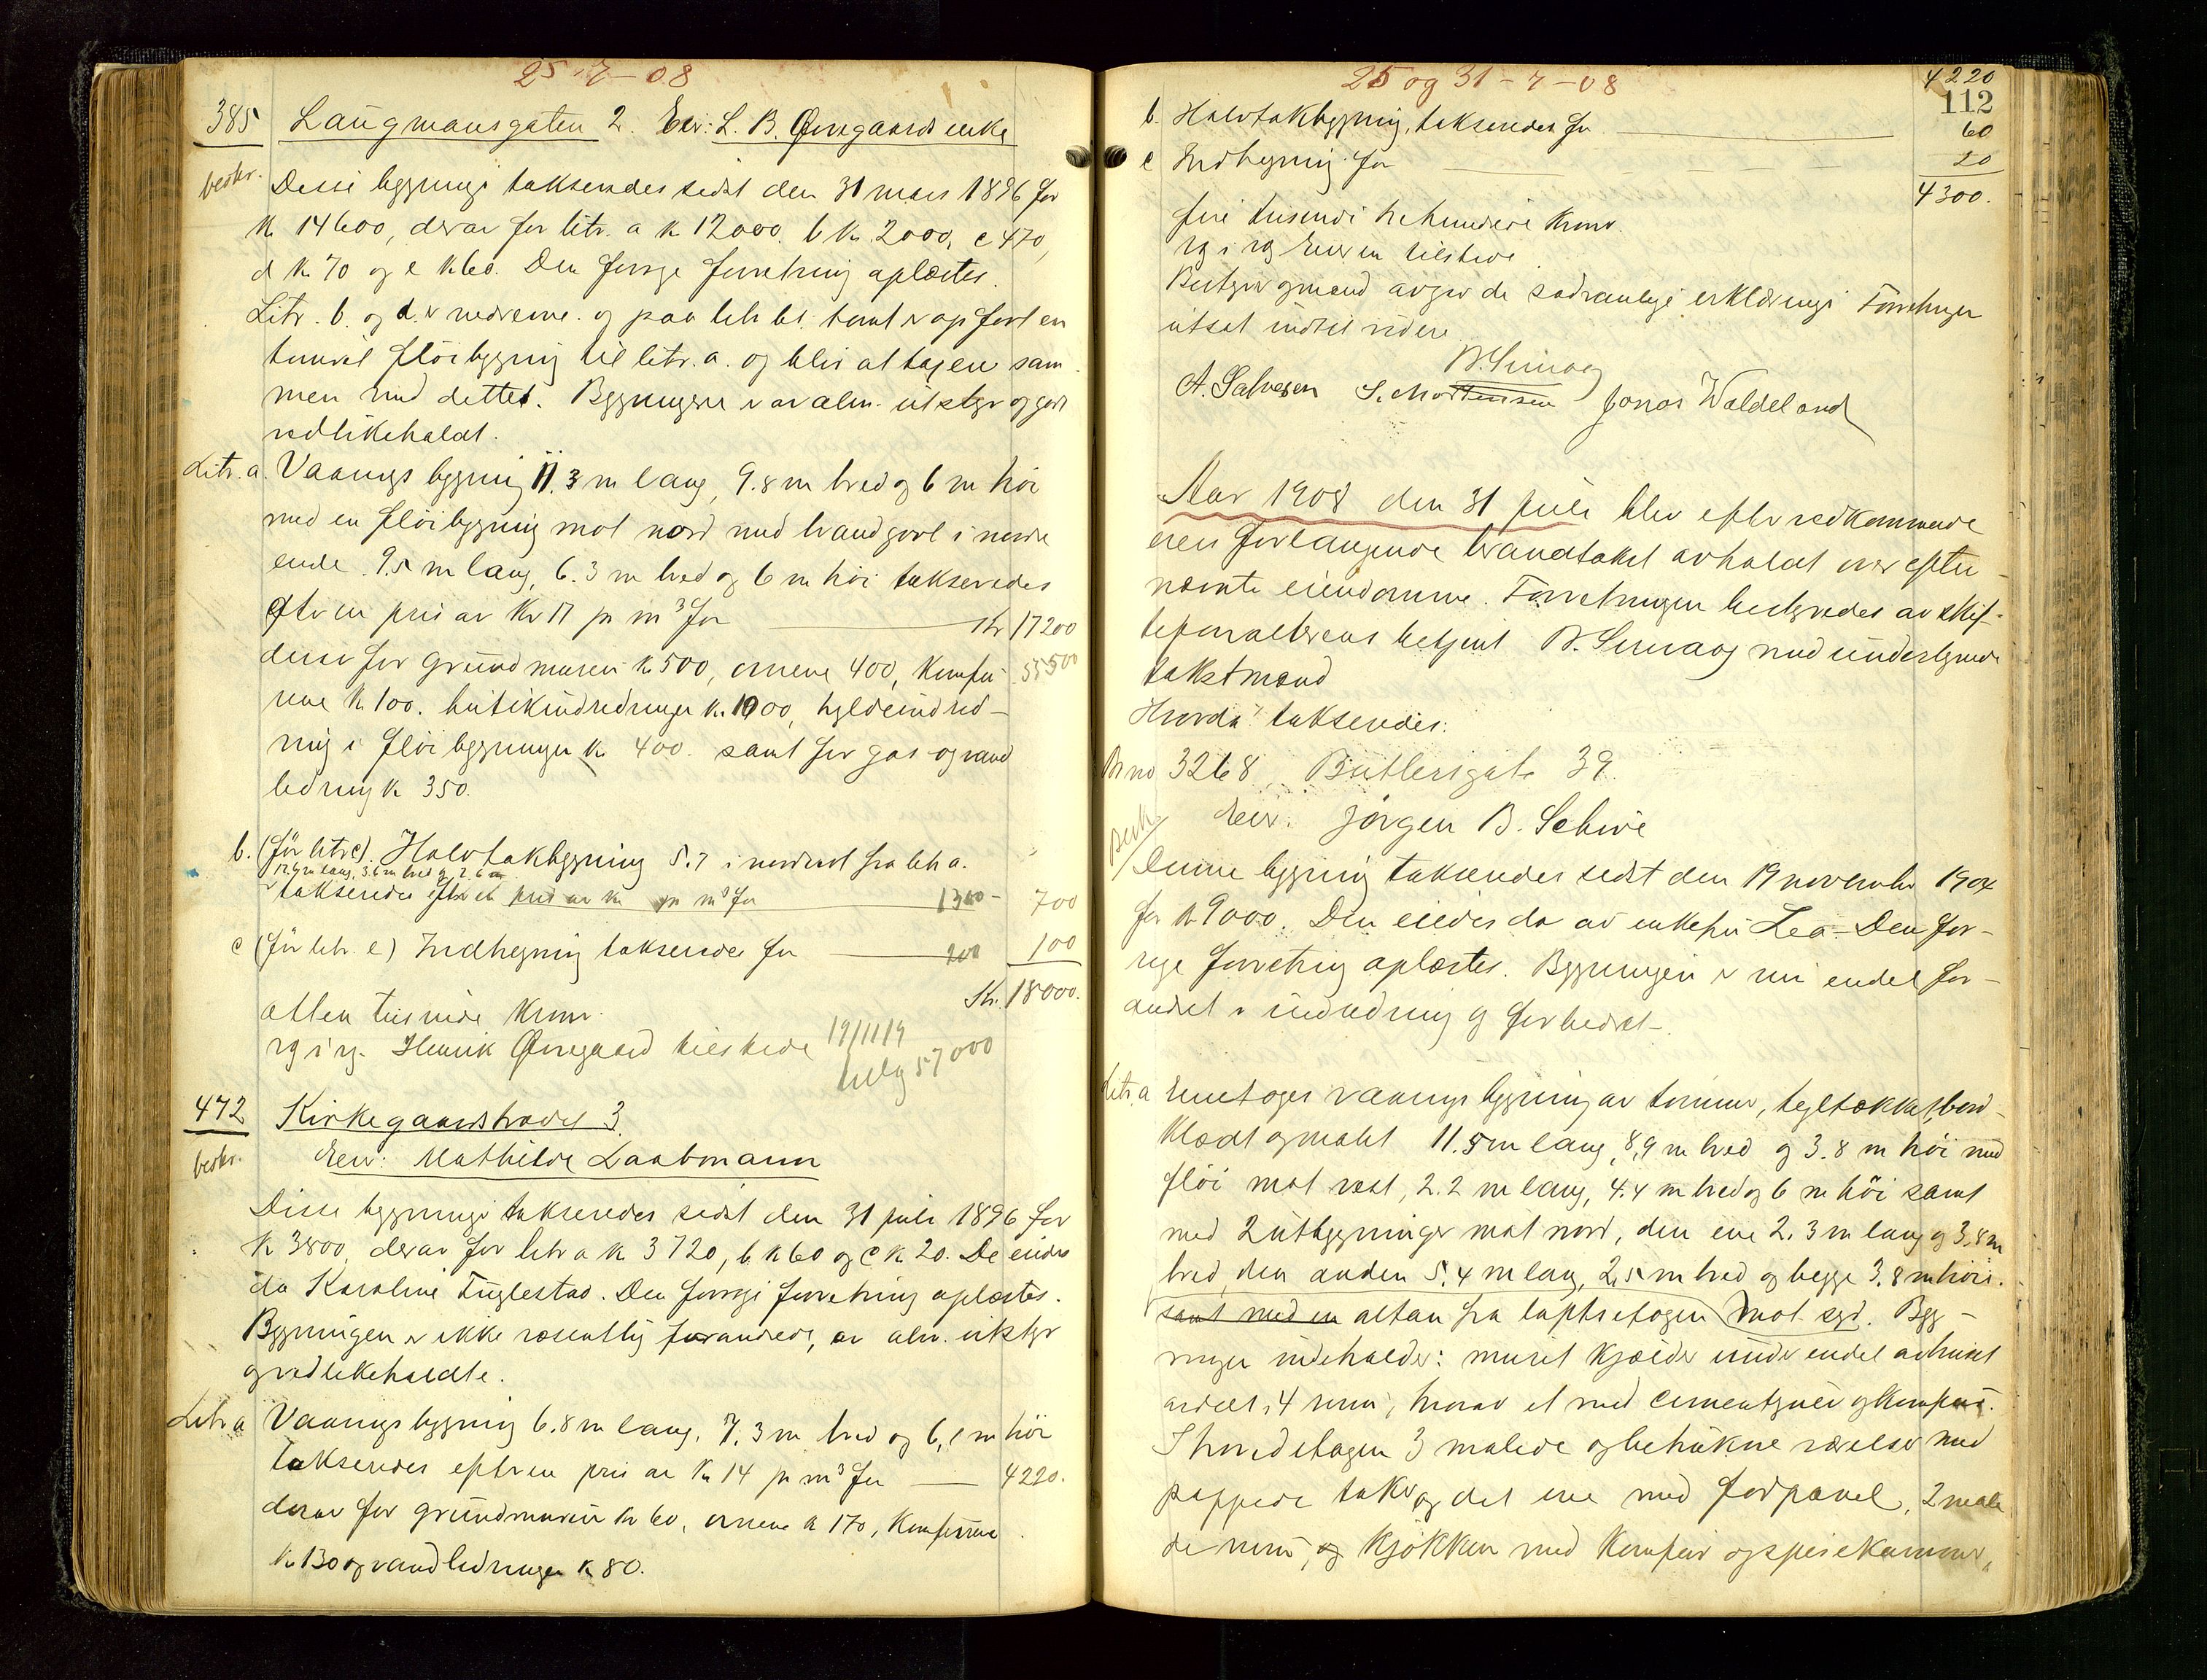 25-7-08
385 Laugmansgaten 2. Eier: L. B. Qvregaards enke
beskr. Disse bygninge takseredes sidst den 31 mars 1896 for
kr 14600, derav for litr. a kr 12000. b kr. 2000, c 470,
d kr 70 og e kr 60. Den forrige forretning oplæstes.
Litr. b. og d. er nedrevne. og paa litr b's tomt er opført en
tømret fløibygning til litr. a. og blir at ta en sam
men med dettet. Bygningerne er av alm. utstyr og godt
vedlikeholdt.
Litr. a. Vaanings bygning 11.3 m lang, 9.8 m bred og 6 m høi
med en fløibygning mot nord med brandgavl i nordre
ende 9.5 m lang, 6.3 m bred og 6 m høi takseredes
efter en pris av Kr 17 pr m³ for Kr 17200
derav for grundmuren kr 500, ovnene 400, komfu- 55500
rene kr 100. butikindredninger kr. 1000, hyldeindred-
ning i fløibygningen kr 400. samt for gas og vand
ledning kr 350.
b. (før litr c). Halvtakbygning 5.7 i nordost fra litr a.
12.9 m lang, 3.6 m bred og 2.6 m
takseredes efter en pris av kr pr m³ for 1300- 700
c (før litr. e) Indhegning takseredes for 200 100
Kr. 18000.
atten tusinde kroner.
rg i rg. Henrik Qvregaard tilstede 19/11/19
57000
472 Kirkegaardstrædet 3.
beskr. Eier: Mathilde Laabmann
Disse bygninge takseredes sidst den 31 juli 1896 for
kr 3800, derav for litr a kr 3720, b kr 60 og c kr 20. De eiedes
da Karoline Fuglestad. Den forrige forretning oplæstes.
Bygningen er ikke væsentlig forandrede, av alm. utstyr
og vedlikeholdte.
Litr a Vaanings bygning 6.8 m lang, 7.3 m bred og 6,1 m høi
takseredes efter en pris av Kr 14 pr m³ for 4220.
derav for grundmuren kr 60, ovnene kr 170, Komfurene
kr 130 og vandledningen kr 80.
25 og 31-7-08
4220
112
b. Halvtakbygning, takseredes for 60
c Indhegning for 20
4300.
fire tusende trehundrede kroner
rg i rg Eieren tilstede.
Bestyrer og mænd avgir de sedvanlige erklæringer Forretningen
utsat indtil videre
B. Sunaag
A. Salvesen S. Mortensen Jonas Waldeland
Aar 1908 den 31 juli blev efter vedkommende
eiers forlangende brandtakst avholdt over efter-
nævnte eiendomme. Forretningen bestyredes av skif-
teforvalterens betjent B. Sunaag med undertegnede
takstmænd
Hvorda takseredes:
Br no 3268, Butlersgate 39.
Eier: Jørgen B. Schive
Besk. Denne bygning takseredes sidst den 19 november 1904
for kr 9000. Den eiedes da av enkefru Lea- Den for-
rige forretning oplæstes. Bygningen er nu endel for-
andret i indredning og forbedret-.
Litr. a Enetages vaanings bygning av tømmer, tegltækket, bord-
klædt og malet 11.5 m lang, 8,9 m bred og 3.8 m høi med
fløi mot vest, 2.2 m lang, 4.4 m bred og 6 m høi samt
med 2 utbygninger mot nord, den ene 2.3 m lang og 3,8 m
bred, den anden 5.4 m lang, 2,5 m bred og begge 3.8 m høie.
samt med en altan fra loftsetagen mot syd. Byg-
ningen indeholder: muret kjælder under endel av huset
avdelt i 4 rum, hvorav et med cementgulv og komfur.
I hovedetagen 3 malede og betrukne værelser med
pappede tak, og det ene med fodpanel, 2 male
de rum, og kjøkken med komfur og spisekammer,